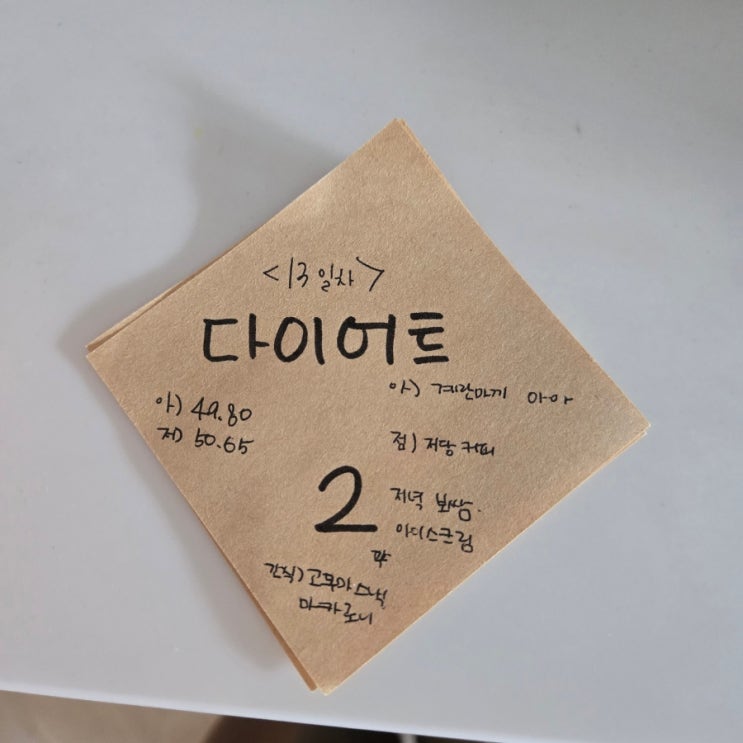 <13일차>
다이어트
아) 49.80
저) 50.65
아) 계란마끼 아아
점) 저당 커피
저녁 보쌈.
아이스크림
2
과
간식) 고구마스낵
마카로니